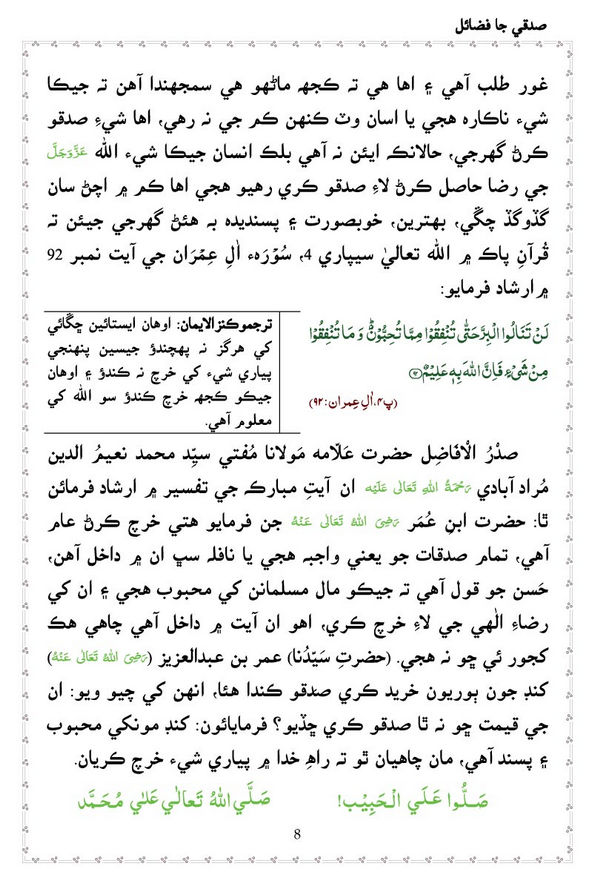 صدقي جا فضائل
غور طلب آهي ۽ اها هي ته ڪجهه ماڻهو هي سمجهندا آهن ته جيڪا
شيء ناڪاره هجي يا اسان وٽ ڪنهن ڪم جي نه رهي، اها شيءِ صدقو
ڪرڻ گهرجي، حالانڪه ايئن نه آهي بلڪ انسان جيڪا شيء الله عَزَّوَجَلَّ
جي رضا حاصل ڪرڻ لاءِ صدقو ڪري رهيو هجي اها ڪم ۾ اچڻ سان
گڏوگڏ چڱي، بهترين، خوبصورت ۽ پسنديده به هئڻ گهرجي جيئن ته
قُرآنِ پاڪ ۾ الله تعاليٰ سيپاري 4، سُوۡرَہء اٰلِ عِمۡرَان جي آيت نمبر 92
۾ ارشاد فرمايو:
لَنْ تَنَالُوا الْبِرَّ حَتّٰى تُنْفِقُوْا مِمَّا تُحِبُّوْنَ ؕ وَ مَا تُنْفِقُوْا
مِنْ شَیْءٍ فَاِنَّ اللهَ بِهٖ عَلِیْمٌ ﴿۹۲﴾
(پ۴، اٰلِ عِمران: ۹۲)
ترجموڪنزالايمان: اوهان ايستائين چڱائي
کي هرگز نہ پهچندؤ جيسين پنهنجي
پياري شيء کي خرچ نہ ڪندؤ ۽ اوهان
جيڪو ڪجهہ خرچ ڪندؤ سو الله کي
معلوم آهي.
صدْرُ الْاَفَاضِل حضرت عَلّامه مَولانا مُفتي سيِّد محمد نعيمُ الدين
مُراد آبادي رَحْمَةُ اللهِ تَعَالٰى عَلَيْه ان آيتِ مبارڪ جي تفسير ۾ ارشاد فرمائن
ٿا: حضرت ابنِ عُمَر رَضِىَ اللهُ تَعَالٰى عَنْهُ جن فرمايو هتي خرچ ڪرڻ عام
آهي، تمام صدقات جو يعني واجبہ هجي يا نافلہ سڀ ان ۾ داخل آهن،
حَسن جو قول آهي تہ جيڪو مال مسلمانن کي محبوب هجي ۽ ان کي
رضاءِ الٰهي جي لاءِ خرچ ڪري، اهو ان آيت ۾ داخل آهي چاهي هڪ
کجور ئي ڇو نہ هجي. (حضرتِ سَيّدُنا) عمر بن عبدالعزيز (رَضِىَ اللهُ تَعَالٰى عَنْهُ)
کنڊ جون ٻوريون خريد ڪري صدقو ڪندا هئا، انهن کي چيو ويو: ان
جي قيمت ڇو نہ ٿا صدقو ڪري ڇڏيو؟ فرمايائون: کنڊ مونکي محبوب
۽ پسند آهي، مان چاهيان ٿو تہ راهِ خدا ۾ پياري شيء خرچ ڪريان.
صَلُّوا عَلَي الْحَبِيْب! صَلَّي اللهُ تَعالٰي عَلٰي مُحَمَّد
8